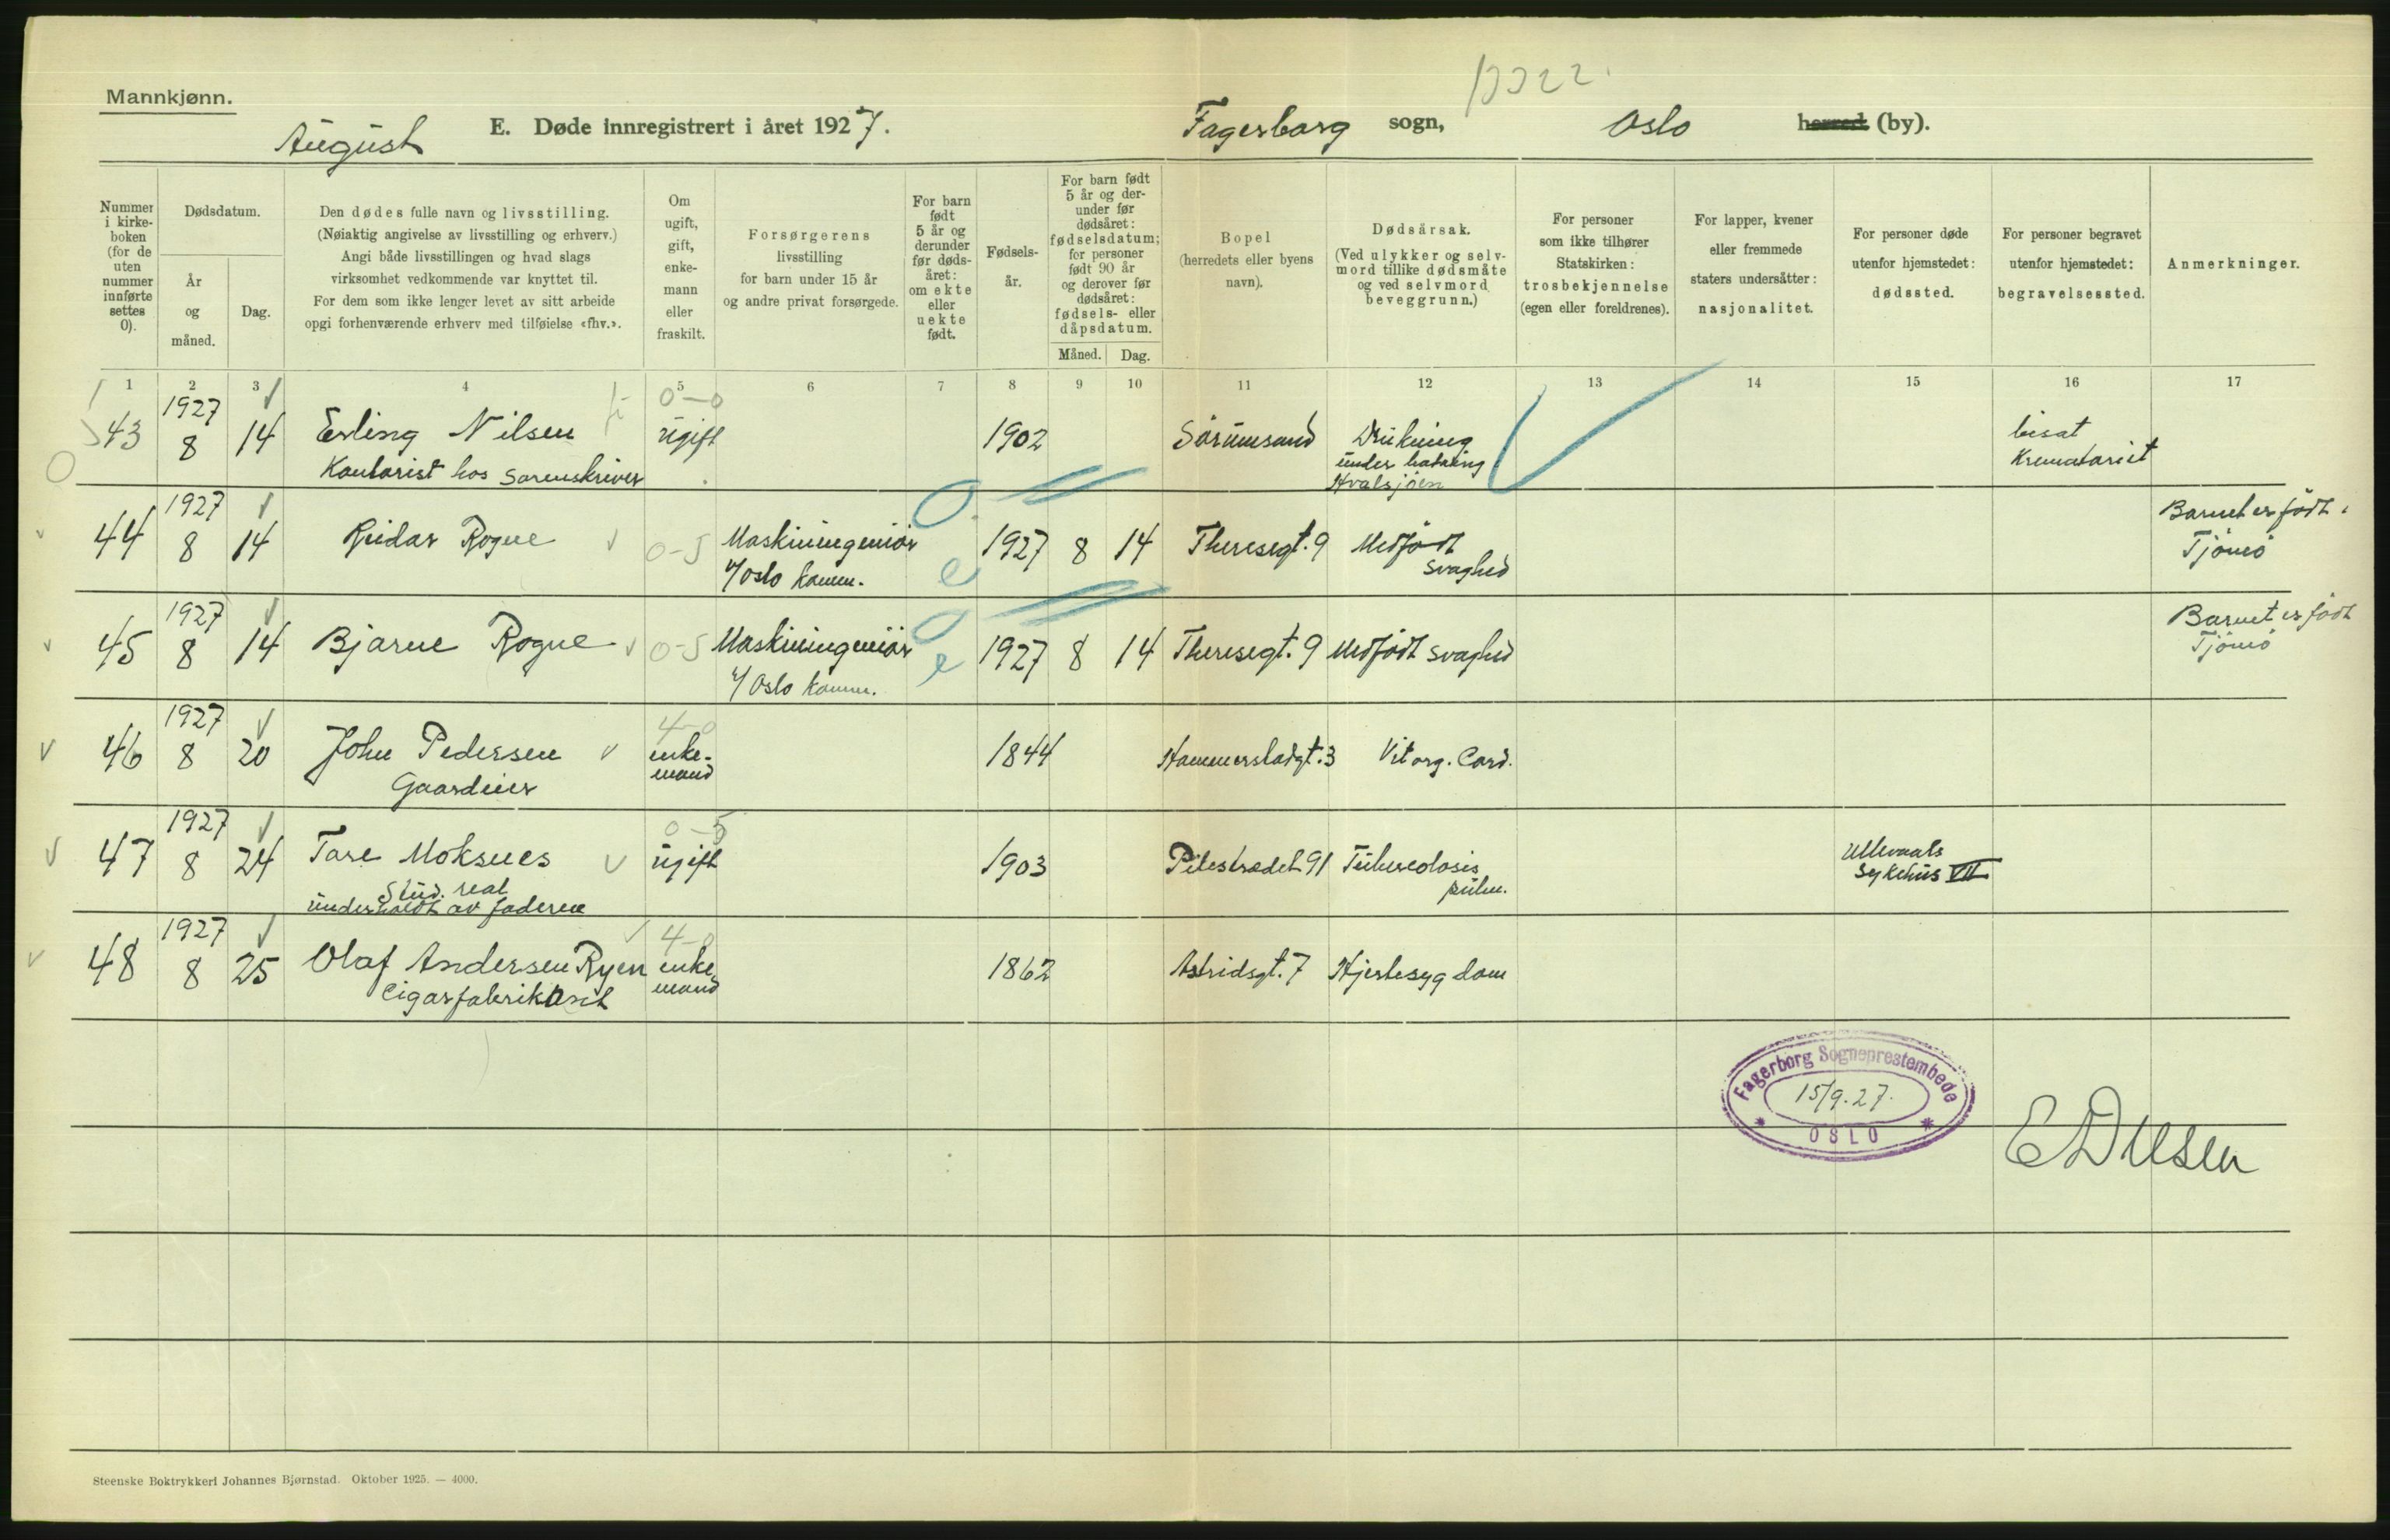 Mannkjønn.
13322.
August E. Døde innregistrert i året 1927. Fagerborg sogn, Oslo herred (by).
Nummer i kirke-boken (for de uten nummer innførte settes 0).
Dødsdatum.
År og måned.
Dag.
Den dødes fulle navn og livsstilling.
(Nøiaktig angivelse av livsstilling og erhverv.)
Angi både livsstillingen og hvad slags
virksomhet vedkommende var knyttet til.
For dem som ikke lenger levet av sitt arbeide
opgi forhenværende erhverv med tilføielse «fhv.».
Om ugift, gift, enke-mann eller fraskilt.
Forsørgerens
livsstilling
for barn under 15 år
og andre privat forsørgede.
For barn født 5 år og derunder før døds-året: om ekte eller uekte født.
Fødsels-år.
For barn født 5 år og der-under før dødsåret: fødselsdatum; for personer født 90 år og derover før dødsåret: fødsels- eller dåpsdatum.
Måned. Dag.
Bopel
(herredets eller byens
navn).
Dødsårsak.
(Ved ulykker og selv-mord tillike dødsmåte og ved selvmord beveggrunn.)
For personer
som ikke tilhører
Statskirken:
trosbekjennelse
(egen eller foreldrenes).
For lapper, kvener
eller fremmede
staters undersåtter:
nasjonalitet.
For personer døde
utenfor hjemstedet:
dødssted.
For personer begravet
utenfor hjemstedet:
begravelsessted.
Anmerkninger.
1 2 3 4 5 6 7 8 9 10 11 12 13 14 15 16 17
1927 0-0
43 8 14 Erling Nilsen ugift 1902 Sørumsand Drukning bisat
Kontorist hos Sorenskriver under badning Krematoriet
Hvalsjøen
0
1927 Barnet er født i
44 8 14 Reidar Rogne 0-5 Maskiningeniør 1927 8 14 Theresegt. 9 Medfødt Tjømø
v/Oslo komm. e svaghed
1927 0 Barnet er født
45 8 14 Bjarne Rogne 0-5 Maskiningeniør e 1927 8 14 Theresegt. 9 Medfødt svaghed Tjømø
v/Oslo komm.
1927 4-0
46 8 20 John Pedersen enke- 1844 Hammerstadgt. 3 Vit. org. Card.
Gaardeier mand
1927 0-5
47 8 24 Tore Moksnes ugift 1903 Pilestrædet 91 Tuberculosis Ullevaals
Stud. real pulm. Sykehus VII
underholdt av faderen
1927 4-0
48 8 25 Olaf Andersen Ryen enke- 1862 Astridsgt. 7 Hjertesygdom
Cigarfabrikant mand
Fagerborg Sogneprestembede
15/9.27.
* OSLO *
Steenske Boktrykkeri Johannes Bjørnstad. Oktober 1925. — 4000.